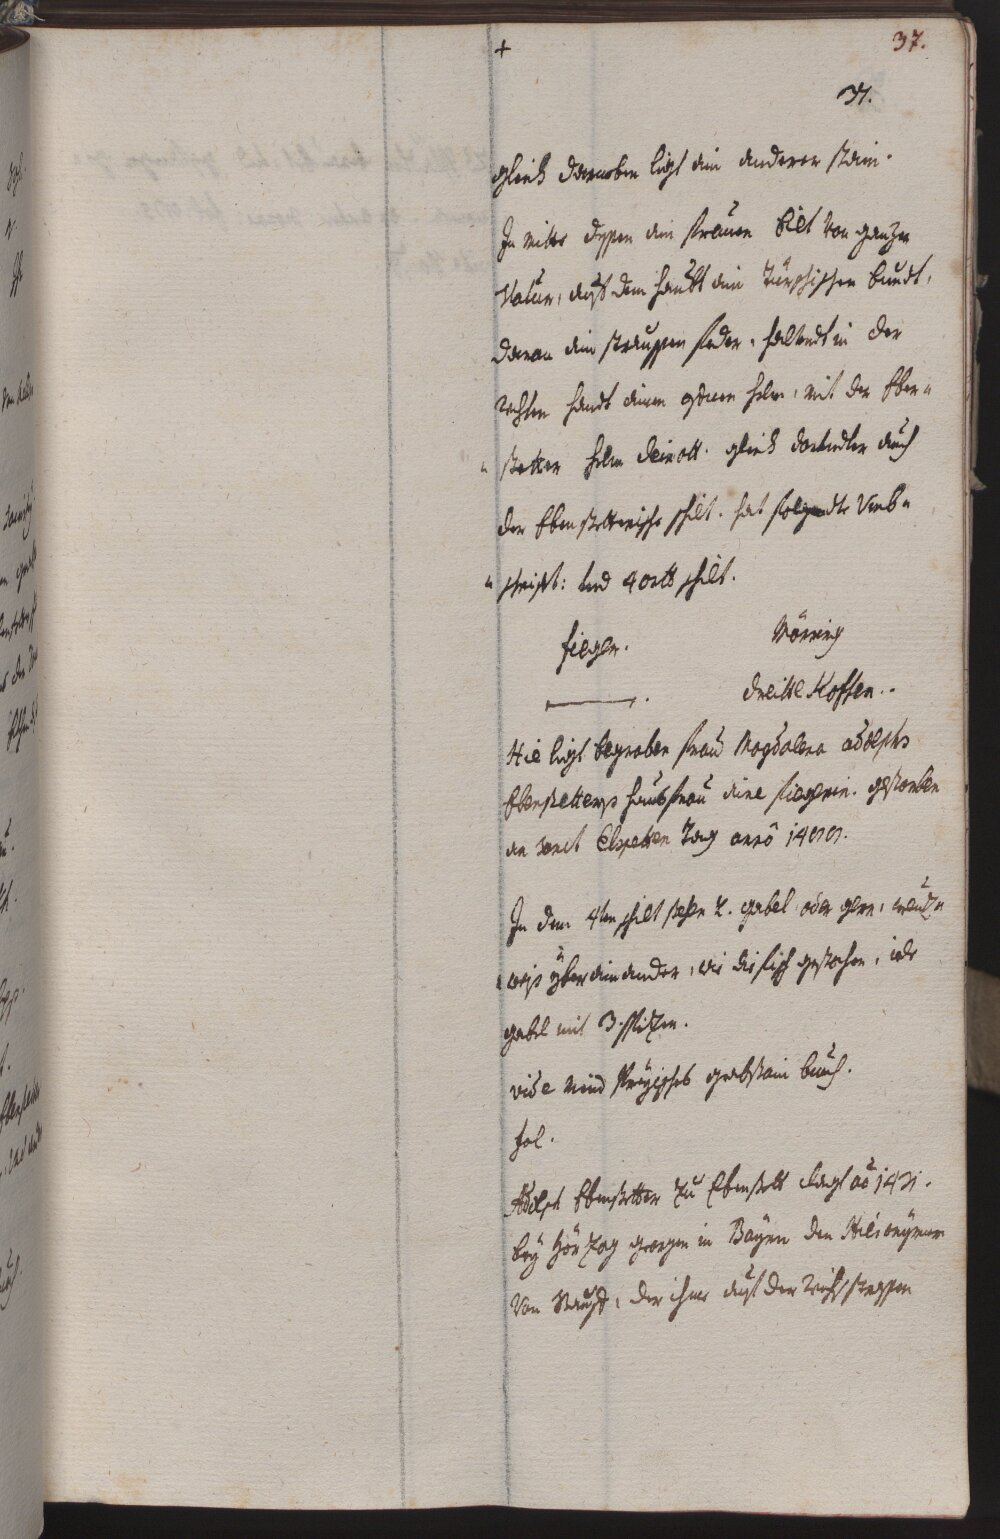 +
37.
37.
gleich darneben ligt ein anderer stain.
In mitte dessen ein frauen bilt von ganzer
Natur, auf dem haubt ein Türchischen bundt,
daran ein straussen feder, haltendt in der
rechten handt einen ofenen helm, mit der Eben-
stetter helm Cleinott. gleich darunter auch
der Ebenstetterische schilt. hat folgendte Umb-
schrifft: und 4 ortt schilt.
fieger. Mörring
———. dritte Kossen.
Hie ligt begraben frau Magdalena adolphs
Ebenstetters hausfrau eine fiegerin. gestorben
an sanct Elspethen Tag anno
In dem 4ten schilt stehen 2. gabel oder geren, creuz-
weis über einander, wie die fisch gestochen, iede
gabel mit 3. spizen.
vide grabstain buech.
fol.
Adolph Ebenstetter zu Ebenstett clagt ao
bey Herzog georgen in Bayrn den Hieronymum
von Stauff, der ihme auf der reichsstrassen